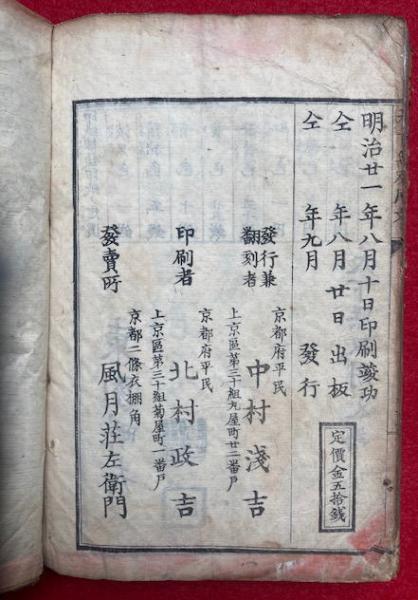 明治廿一年八月十日印刷竣功
仝 年八月廿日出板
仝 年九月 發行
定價金五拾銭
發行兼
翻刻者
京都府平民
中村淺吉
上京區第三十組九屋町廿二番戸
印刷者
京都府平民
北村政吉
上京區第三十組菊屋町一番戸
發賣所
京都二條衣棚角
風月莊左衛門